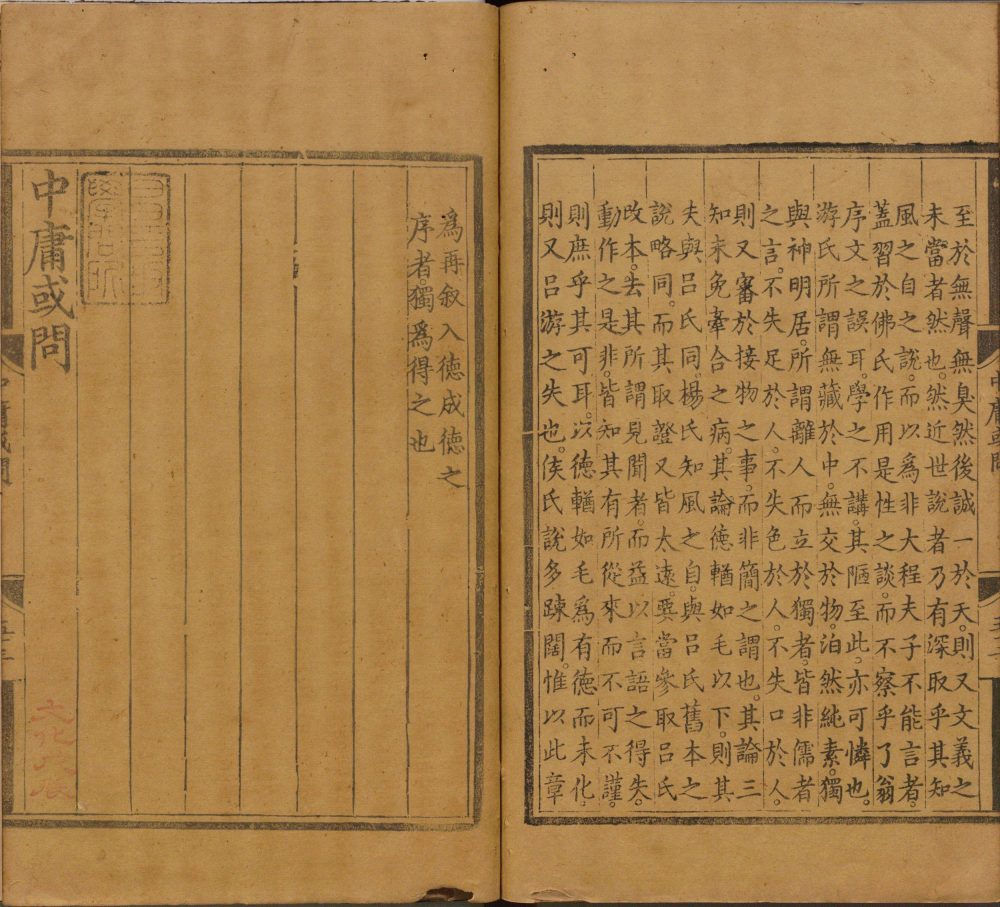 至於無聲無臭然後誠一於天。則又文義之
未當者然也。然近世說者乃有深取乎其知
風之自之說。而以爲非大程夫子不能言者。
蓋習於佛氏作用是性之談。而不察乎了翁
序文之誤耳。學之不講。其陋至此。亦可憐也。
游氏所謂無藏於中。無交於物。泊然純素。獨
與神明居。所謂離人而立於獨者。皆非儒者
之言。不失足於人。不失色於人。不失口於人。
則又審於接物之事。而非簡之謂也。其論三
知未免牽合之病。其論德輶如毛以下。則其
失與呂氏同。楊氏知風之自。與呂氏舊本之
說略同。而其取證又皆太遠。要當參取呂氏
改本。去其所謂見聞者。而益以言語之得失。
動作之是非。皆知其有所從來而不可不謹。
則庶乎其可耳。以德輶如毛爲有德而未化。
則又呂游之失也。侯氏說多踈闊。惟以此章
爲再敘入德成德之
序者。獨爲得之也
中庸或問
文化六